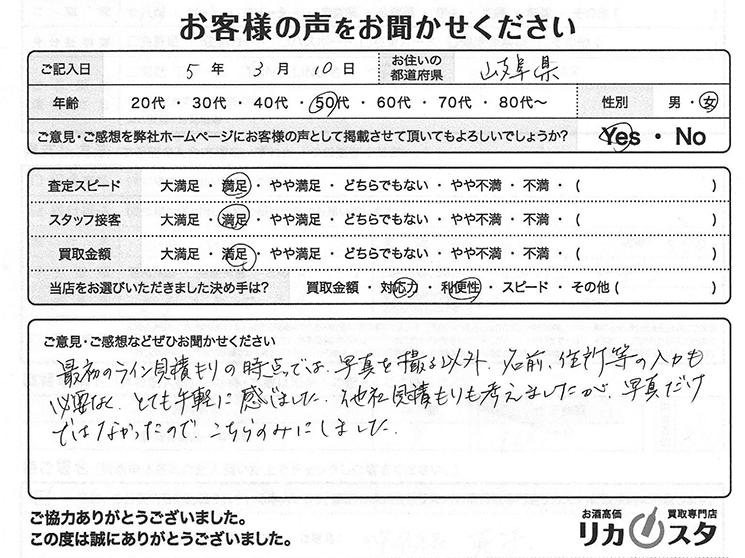 お客様の声をお聞かせください
ご記入日 5 年 3 月 10 日 お住いの都道府県 岐阜県
年齢 20代 ・ 30代 ・ 40代 ・ 50代 ・ 60代 ・ 70代 ・ 80代〜 性別 男 ・ 女
ご意見・ご感想を弊社ホームページにお客様の声として掲載させて頂いてもよろしいでしょうか? Yes ・ No
査定スピード 大満足 ・ 満足 ・ やや満足 ・ どちらでもない ・ やや不満 ・ 不満 ・ ( )
スタッフ接客 大満足 ・ 満足 ・ やや満足 ・ どちらでもない ・ やや不満 ・ 不満 ・ ( )
買取金額 大満足 ・ 満足 ・ やや満足 ・ どちらでもない ・ やや不満 ・ 不満 ・ ( )
当店をお選びいただきました決め手は? 買取金額 ・ 対応力 ・ 利便性 ・ スピード ・ その他 ( )
ご意見・ご感想などぜひお聞かせください
最初のライン見積もりの時点では、写真を撮る以外、名前、住所等の入力も
必要なく、とても手軽に感じました。他社見積もりも考えましたが、写真だけ
ではなかったので、こちらのみにしました。
ご協力ありがとうございました。
この度は誠にありがとうございました。
お酒高価 買取専門店
リカスタ